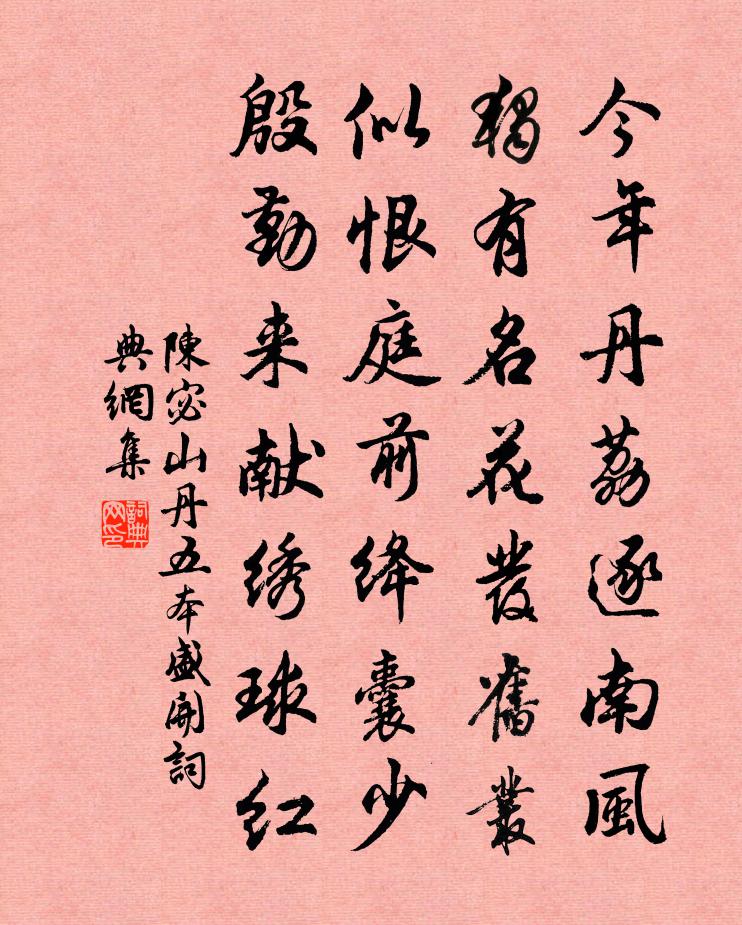 今年丹荔逐南風
獨有名花發舊叢
似恨庭前绛囊少
殷勤来献绣球红
陳宓山丹五本盛開詞
典網集
詞典
网印